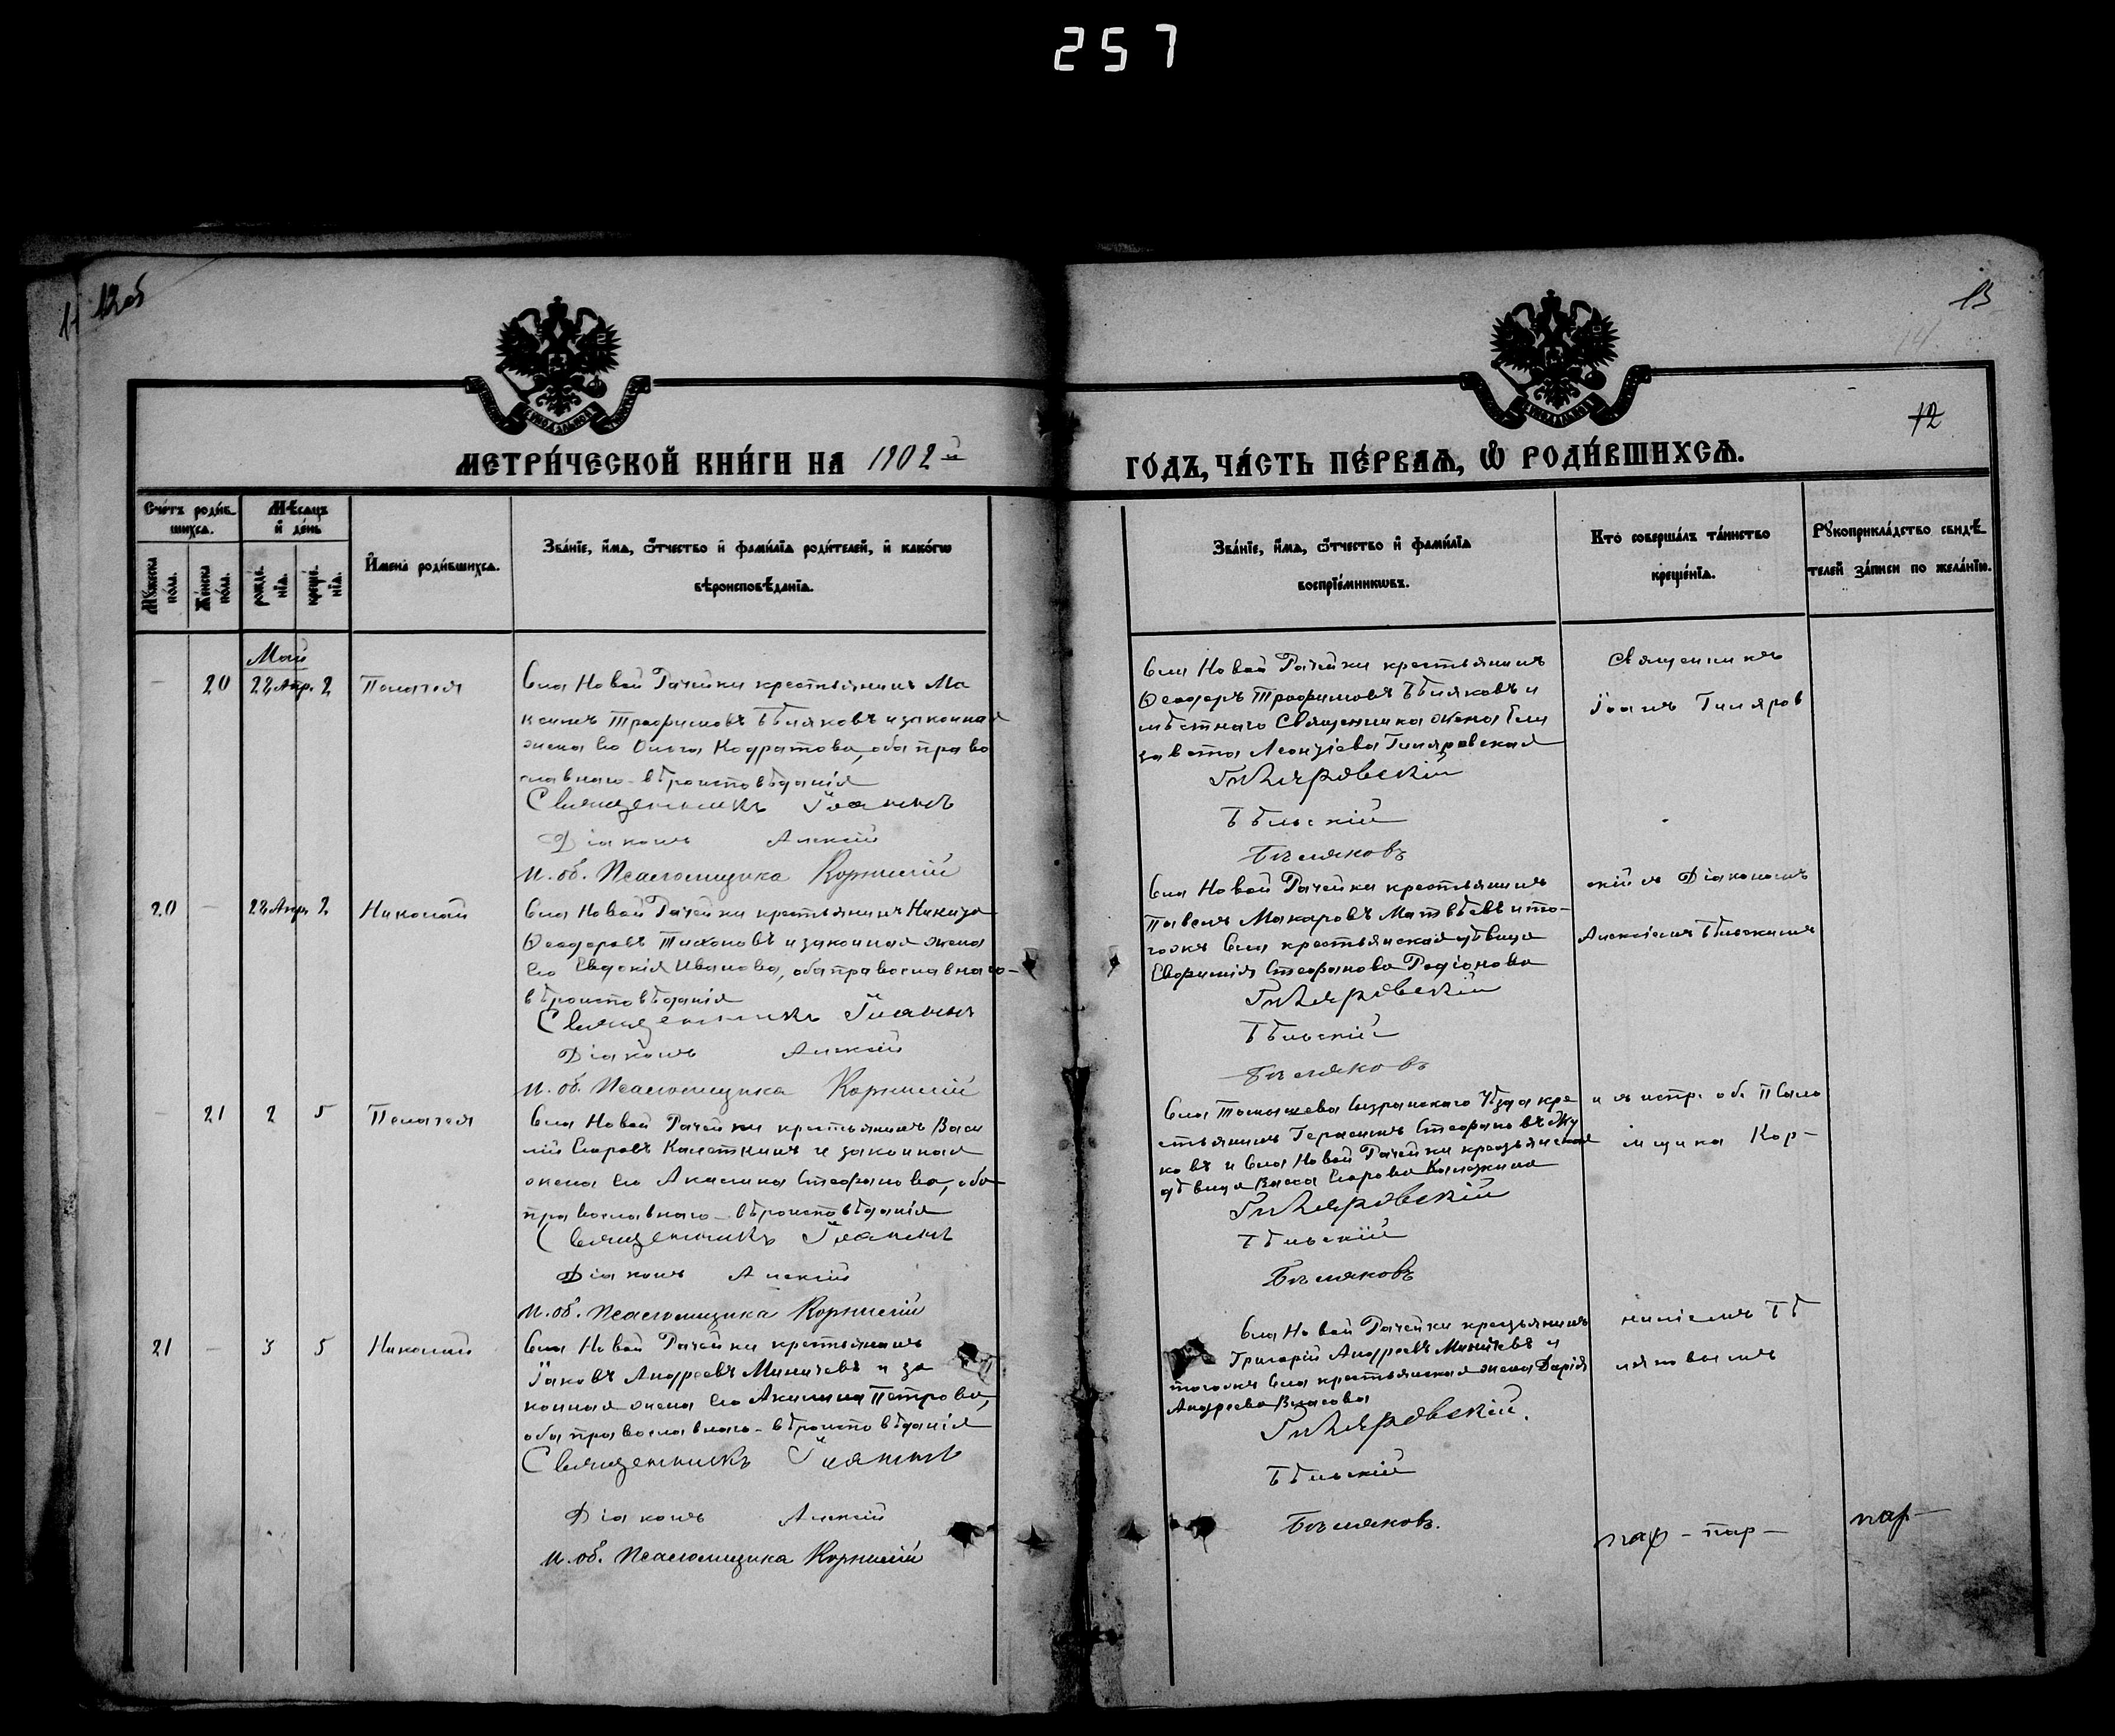 257
12об
13
14
12
МЕТРИ́ЧЕСКОЙ КНИ́ГИ НА 1902й ГО́ДЪ, ЧА́СТЬ ПЕ́РВАѦ, Ѡ РОДИ́ВШИХСѦ.
Сче́тъ роди́в-
шихсѧ.
Мѣ́сѧцъ
и҆ де́нь
Мꙋ́жеска
по́ла.
Же́нска
по́ла.
рожде́-
нїѧ.
креще́-
нїѧ.
И҆мена̀ роди́вшихсѧ.
Зва́нїе, и҆́мѧ, ѻ҆́тчество и҆ фамѝлїѧ роди́телей, и҆ како́гѡ
вѣроисповѣ́данїѧ.
Зва́нїе, и҆́мѧ, ѻ҆́тчество и҆ фамѝлїѧ
воспрїе́мникѡвъ.
Кто̀ соверша́лъ та́инство
креще́нїѧ.
Рꙋкоприкла́дство свидѣ́-
телей за́писи по жела́нїю.
Май
— 20 28 Апр. 2 Пелагея
Села Новой Рачейки крестьянинъ Ма
ксимъ Трофимовъ Бѣляковъ и законная
жена его Ольга Кодратова, оба право
славнаго вѣроисповѣданія
Священникъ Іоаннъ
Діаконъ Алексій
И. об. Псаломщика Корнилій
Села Новой Рачейки крестьянинъ
Ѳеодоръ Трофимовъ Бѣляковъ и
мѣстнаго Священника жена Ели
завета Леонтіева Гиляровская
Гиляровскій
Бѣльскій
Бѣляковъ
Священникъ
Іоаннъ Гиляров
20 — 28 Апр. 2 Николай
Села Новой Рачейки крестьянинъ Никита
Ѳеодоровъ Тихоновъ и законная жена
его Евдокія Иванова, оба православнаго
вѣроисповѣданія
Священникъ Іоаннъ
Діаконъ Алексій
И. об. Псаломщика Корнилій
Села Новой Рачейки крестьянинъ
Павелъ Макаровъ Матвѣевъ и то-
гоже села крестьянская дѣвица
Евфимія Стефанова Родіонова
Гиляровскій
Бѣльскій
Бѣляковъ
скій съ Діакономъ
Алексіемъ Бѣльскимъ
— 21 2 5 Пелагея
Села Новой Рачейки крестьянинъ Васи
лій Егоровъ и законная
жена его Акилина Стефанова, оба
православнаго вѣроисповѣданія
Священникъ Іоаннъ
Діаконъ Алексій
И. об. Псаломщика Корнилій
Села Томышева Сызранскаго Уѣзда кре
стьянинъ Герасимъ Стефановъ Жу
ковъ и села Новой Рачейки крестьянская
дѣвица Васса Егорова
Гиляровскій
Бѣльскій
Бѣляковъ
и съ испр. об. Псало
мщика Кор-
21 — 3 5 Николай
Села Новой Рачейки крестьянинъ
Іаковъ Андреевъ Миничевъ и за
конная жена его Акилина Петрова,
оба православнаго вѣроисповѣданія
Священникъ Іоаннъ
Діаконъ Алексій
И. об. Псаломщика Корнилій
Села Новой Рачейки крестьянинъ
Григорій Андреевъ Миничевъ и
тогоже села крестьянская жена Дарія
Андреева Власова
Гиляровскій.
Бѣльскій
Бѣляковъ.
ниліемъ Бѣ
ляковымъ